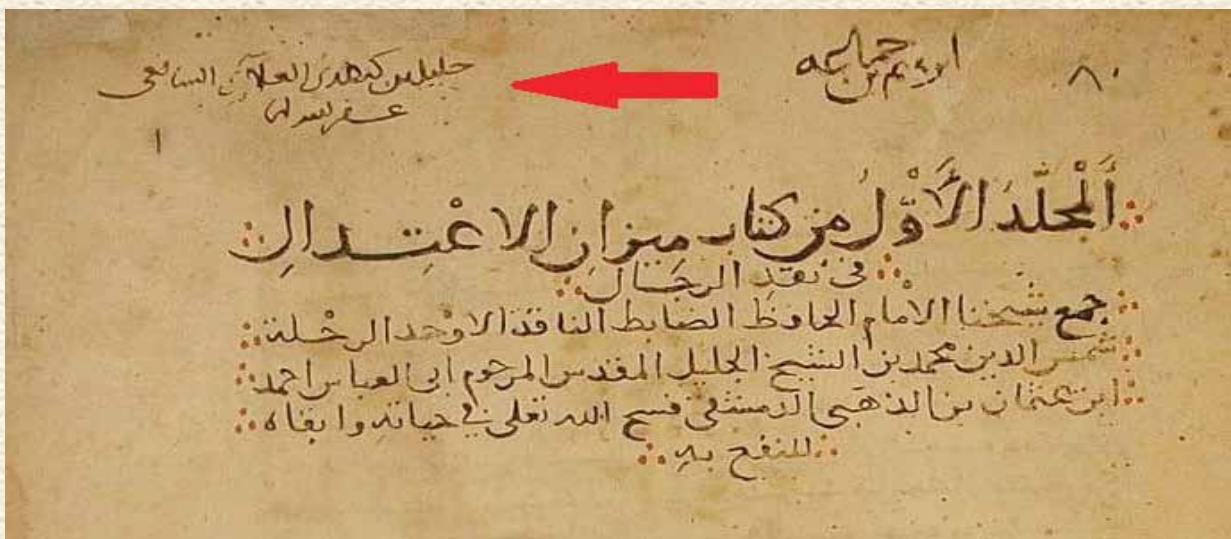 ٨٠
ابرهيم بن جماعه
خليل بن كيكلدي العلائي الشافعي
عفر الله له
١
اَلْمجلّد الأَوّلُ من كتاب ميزان الاعْتِدالِ
في نقد الرجال
جمع شيخنا الامام الحافظ الضابط الناقد الاوْحد الرحْلة
شمس الدين محمد بن الشيخ الجليل المقدس المرحوم ابى العباس احمد
ابن عثمان بن الذهبى الدمشقى فسح الله تعلى في حياته وابقاه
للنفع به